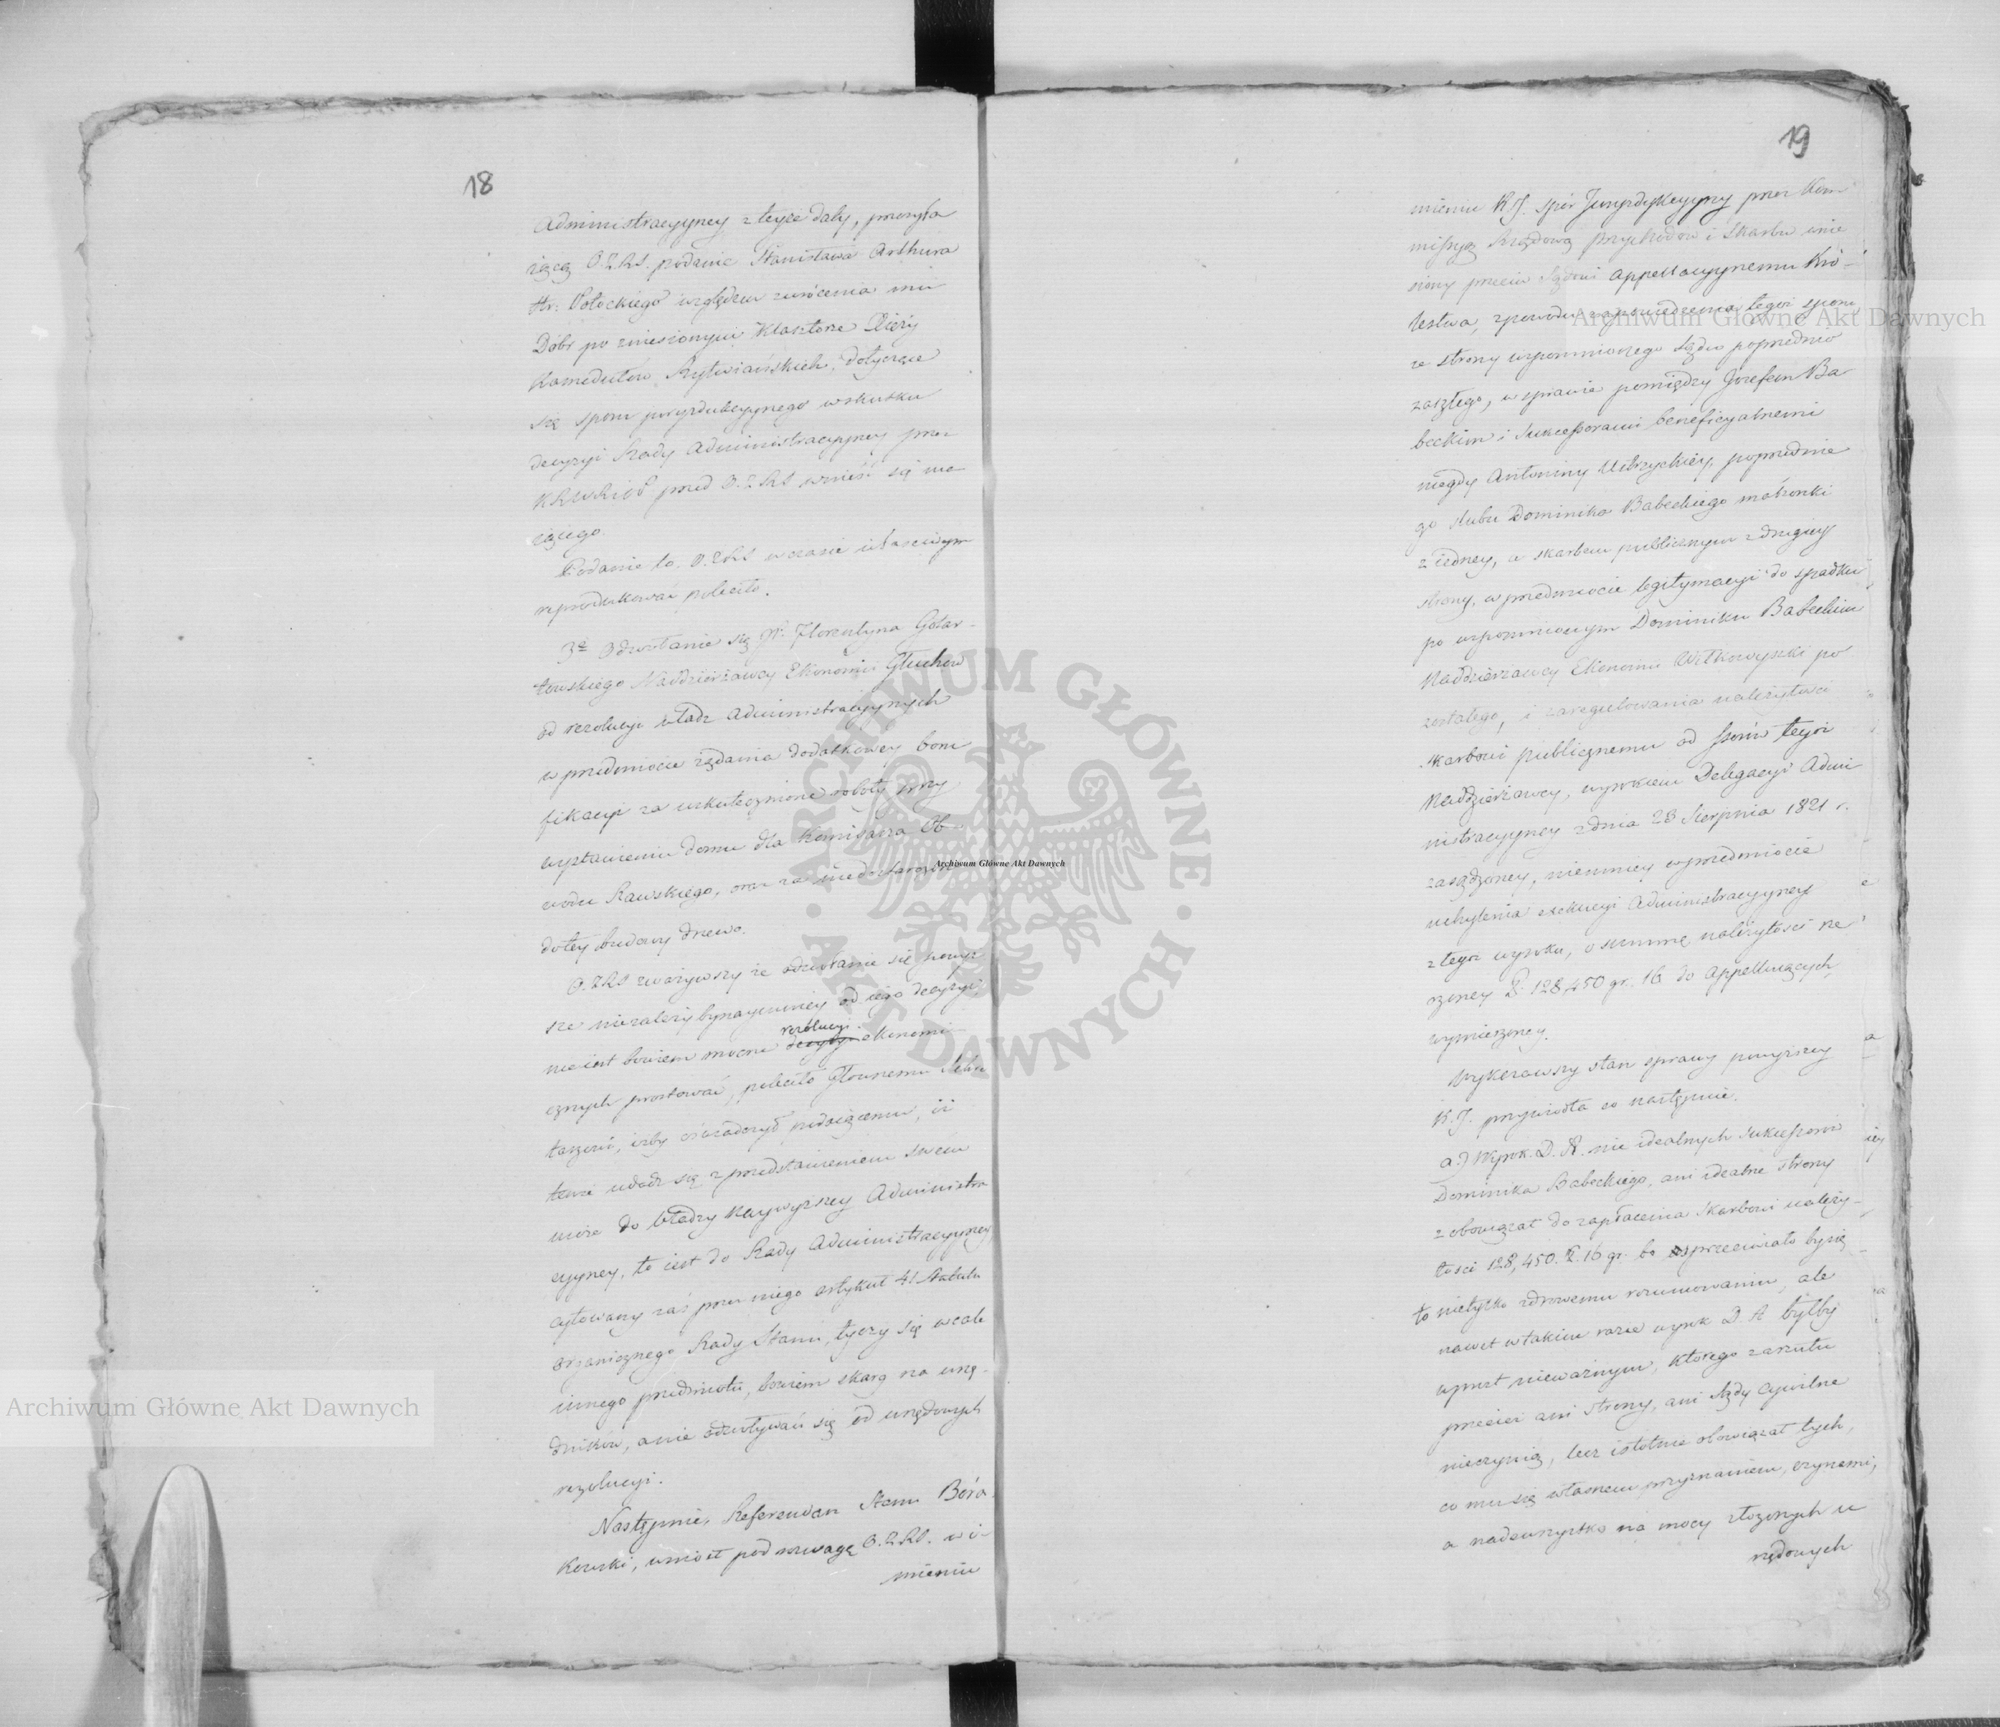 18
Administracyyney z teyże daty, przesyła
iącą O.Z.R.S. podanie Stanisława Arthura
Hr. Potockiego względem zwrócenia mu
Dóbr po zniesionym Klasztorze Xięży
Kamedułów Rytwiańskich, dotyczące
się sporu juryzdykcyynego wskutku
decyzyi Rady Administracyyney przez
KRWRiOP przed O.Z.R.S wnieść się ma
iącego.
Podanie to O.Z.R.S wczasie właściwym
reprodukować poleciło.
3e Odwołanie się JP. Florentyna Gołar-
towskiego Naddzierżawcy Ekonomii Głuchow
od rezolucyi władz Administracyynych
w przedmiocie żądania dodatkowey boni
fikacyi za uskutecznione roboty przy
wystawieniu domu dla Kommissarza Ob-
wodu Rawskiego, oraz za niedostarczone
do tey budowy drzewo.
O.Z.R.S zważywszy że odwołanie się powyż
sze niezależy bynaymniey od iego decyzyi,
nieiest bowiem mocne decyzyi ekonomi
rezolucyi
cznych prostować, poleciło Głównemu Sekre
tarzowi, iżby oświadczył podaiącemu, iż
może do Władzy Naywyższey Administra
cyyney, to iest do Rady Administracyyney
cytowany zaś przez niego artykuł 41 Statutu
organicznego Rady Stanu, tyczy się wcale
innego przedmiotu, bowiem skarg na urzę-
dników, a nie odwoływań się od urzędowych
rezolucyi.
Następnie, Referendarz Stanu Boro
kowski, wniósł pod rozwagę O.Z.R.S. w i-
mieniu
19
mieniu K.S. spór Juryzdykcyyny przez Kom
missyą Rządową Przychodów i Skarbu wnie
siony przeciw Sądowi Appellacyynemu Kró-
lestwa, z powodu zaprzeczenia tegoż sporu
ze strony wspomnionego Sądu poprzednio
zaszłego, w sprawie pomiędzy Józefem Ba
beckim i Sukcessorami beneficyalnemi
niegdy Antoniny Ustrzyckiey, poprzednie
go ślubu Dominika Babeckiego małżonki
z iedney, a skarbem publicznym z drugiey
strony, w przedmiocie legitymacyi do spadku
po wspomnionym Dominiku Babeckim
Naddzierżawcy Ekonomii Witkowyszki po
zostałego, i zaregulowania należytości
skarbowi publicznemu od ssorów tegoż
Naddzierżawcy, wyrokiem Delegacyi Admi
nistracyyney z dnia 28 Sierpnia 1821 r.
zasądzoney, niemniey w przedmiocie
uchylenia exekucyi Administracyyney
z tegoż wyroku, o summę należytości rze
czoney Z. 128,450 gr. 16 do appelluiących
wymierzoney.
Wykazawszy stan sprawy powyższey
K.S. przywiodła co następuie.
a.) Wyrok. D.A. nie idealnych sukcessorów
Dominika Babeckiego, ani idealne strony
zobowiązał do zapłacenia Skarbowi należy-
tości 128,450. Z. 16 gr. bo sprzeciwiało by się
to nietylko zdrowemu rozumowaniu, ale
nawet w takim razie wyrok D.A byłby
wprost nieważnym, którego zarzutu
przecież ani strony, ani Sądy Cywilne
nieczynią, lecz istotnie obowiązał tych,
co mu się własnem przyznaniem, czynami,
a nadewszystko na mocy złożonych u
rzędowych
Archiwum Główne Akt Dawnych
Archiwum Główne Akt Dawnych
Archiwum Główne Akt Dawnych
ARCHIWUM GŁÓWNE · AKT DAWNYCH ·